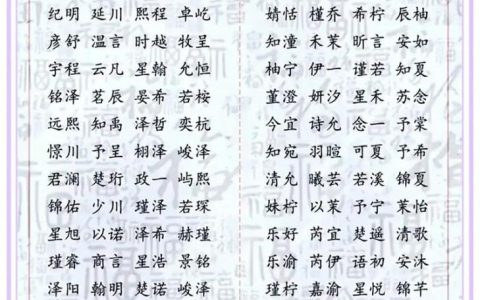 纪明 延川 熙程 卓屹 婧恬 槿乔 希柠 辰柚
彦舒 温言 时越 牧呈 知潼 禾茉 昕言 安如
宇程 云凡 星翰 允恒 柚宁 伊一 谨若 知夏
铭泽 茗辰 晏希 若桉 董澄 妍汐 星禾 苏念
远熙 知禹 泽哲 奕杭 今宜 诗允 念一 予棠
憬川 予呈 栩泽 峻泽 知宛 羽暄 可夏 予希
君澜 楚珩 政一 屿熙 清允 曦芸 若溪 锦夏
锦佑 少川 瑾泽 若琛 姝柠 以茉 予宁 茉怡
星旭 以诺 泽希 赫瑾 乐好 芮宜 楚遥 清歌
瑾睿 商言 星浩 景铭 乐渝 芮伊 语初 安沐
泽阳 翰明 楚诺 峻泽 瑾柠 嘉渝 星悦 锦芊